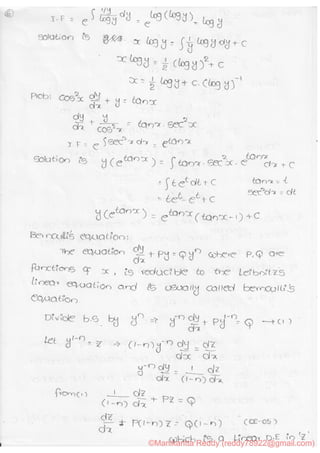 I.F = e^∫ (1/y)/(log y) dy = e^log(log y) = log y
solution is x log y = ∫ 1/y log y dy + c
x log y = 1/2 (log y)² + c
x = 1/2 log y + c.(log y)⁻¹
Prob: cos²x dy/dx + y = tanx
dy/dx + y/cos²x = tanx . sec²x
I.F = e^∫sec²x dx = e^tanx
solution is y(e^tanx) = ∫ tanx . sec²x . e^tanx dx + c
= ∫ t e^t dt + c   tanx = t
= te^t - e^t + c   sec²x dx = dt
y(e^tanx) = e^tanx (tanx - 1) + c
Bernoulli's equation:
The equation dy/dx + Py = Q yⁿ where P, Q are
functions of x, is reducible to the Leibnitz's
linear equation and is usually called bernoulli's
equation.
Divide b.s by yⁿ ⇒ y⁻ⁿ dy/dx + P y¹⁻ⁿ = Q → (1)
Let y¹⁻ⁿ = z ⇒ (1-n) y⁻ⁿ dy/dx = dz/dx
y⁻ⁿ dy/dx = 1/(1-n) dz/dx
from (1) 1/(1-n) dz/dx + Pz = Q
dz/dx + P(1-n) z = Q(1-n)
which is a Linear D.E in 'z'
©Manikanta Reddy (reddy78922@gmail.com)